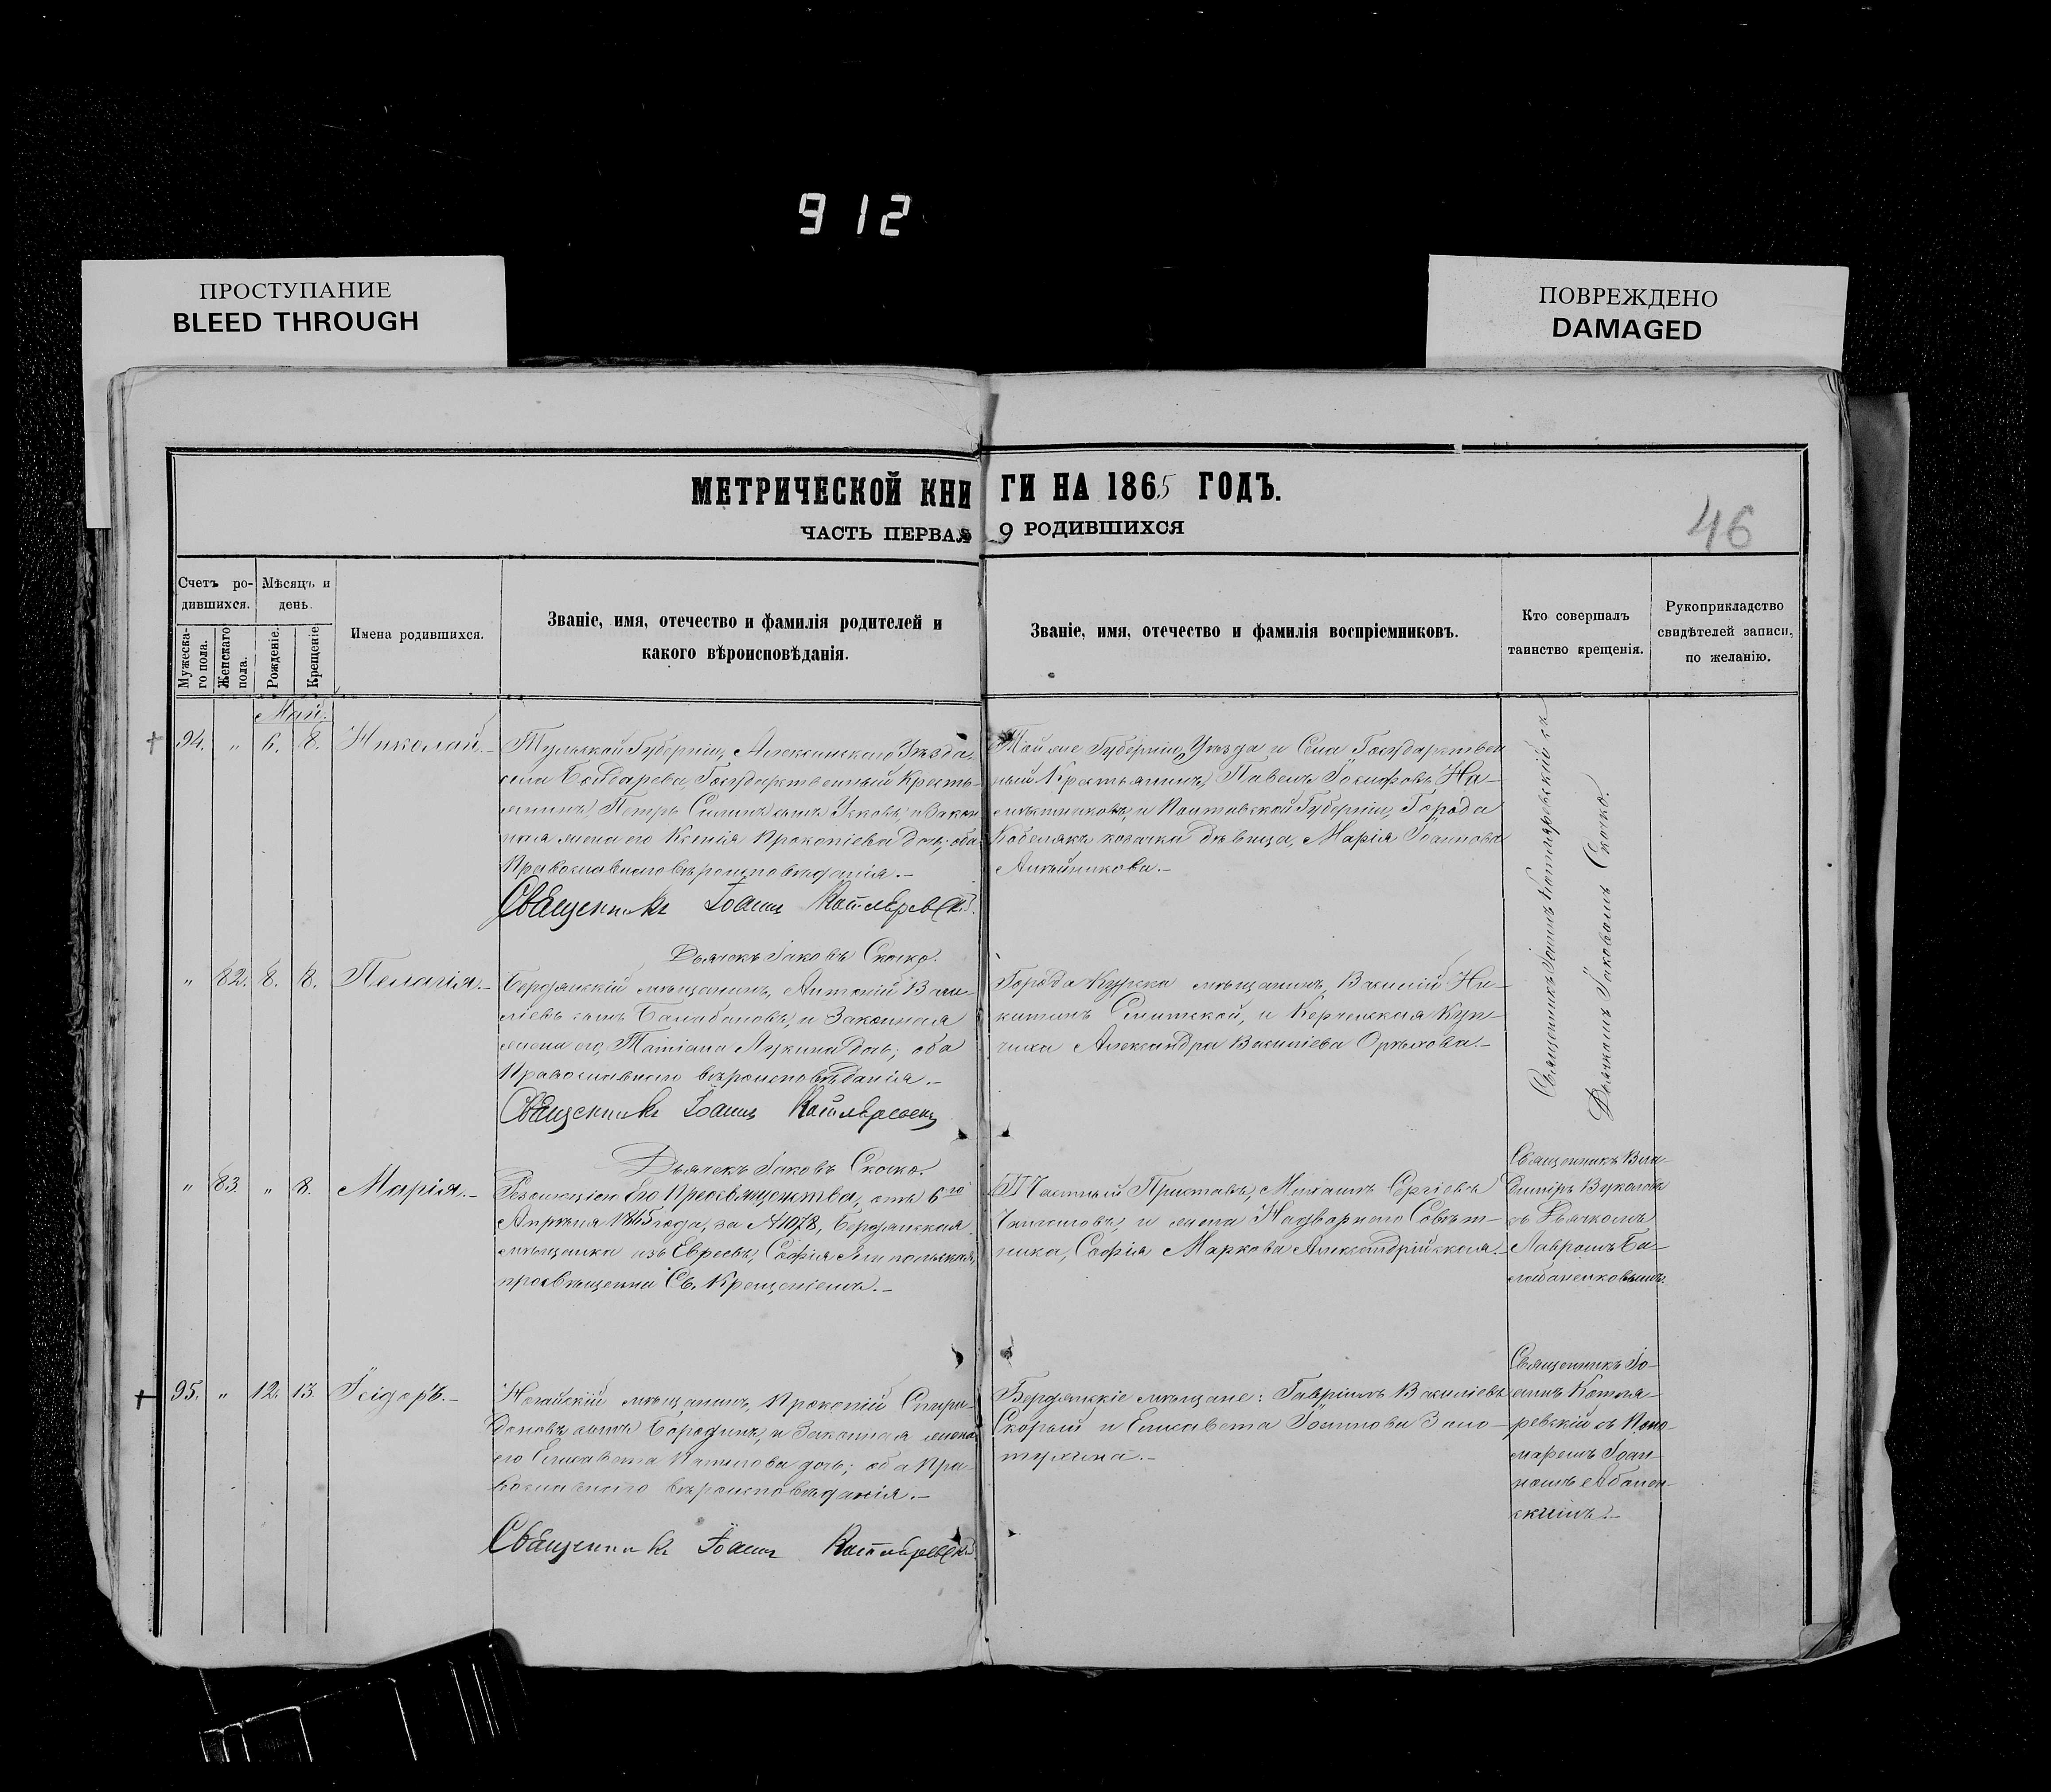 912
ПРОСТУПАНИЕ
BLEED THROUGH
ПОВРЕЖДЕНО
DAMAGED
МЕТРИЧЕСКОЙ КНИГИ НА 1865 ГОДЪ.
ЧАСТЬ ПЕРВАЯ О РОДИВШИХСЯ
46
Счетъ ро-
дившихся.
Мужеска-
го пола.
Женскаго
пола.
Мѣсяцъ и
день.
Рожденіе.
Крещеніе.
Имена родившихся.
Званіе, имя, отечество и фамилія родителей и
какого вѣроисповѣданія.
Званіе, имя, отечество и фамилія воспріемниковъ.
Кто совершалъ
таинство крещенія.
Рукоприкладство
свидѣтелей записи,
по желанію.
Май.
94. " 6. 8. Николай.-
Тульской Губерніи, Алексинскаго Уѣзда,
села Государственный Кресть-
янинъ, Петръ сынъ и Закон
ная жена его Ксенія Прокопіева дочь; оба
Православнаго вѣроисповѣданія.-
Священникъ Іоаннъ Котляревскій.
Дьячекъ Іаковъ Скочко.
Той же Губерніи, Уѣзда и Села Государствен
ный Крестьянинъ, Павелъ Іосифовъ На-
мѣстниковъ, и Полтавской Губерніи, Города
Кобелякъ козачка дѣвица, Марія Іоаннова
Священникъ Іоаннъ Котляревскій съ
Дьячкомъ Іаковомъ Скочко.
" 82. 8. 8. Пелагія.-
Бердянскій мѣщанинъ, Антоній Васи-
ліевъ сынъ Балабановъ, и Законная
жена его, Татіана Лукина дочь; оба
Православнаго вѣроисповѣданія.-
Священникъ Іоаннъ Котляревскій
Дьячекъ Іаковъ Скочко.
Города Курска мѣщанинъ, Василій Ни-
китинъ и Керченская Куп-
чиха Александра Василіева Орѣхова.-
" 83. " 8. Марія.-
Резолюціею Его Преосвященства, отъ 6го
Апрѣля 1865 года, за №1078, Бердянская
мѣщанка изъ Евреевъ, Софія
просвѣщенна Св. Крещеніемъ.-
Частный Приставъ, Михаилъ Сергіевъ
и жена Надворнаго Совѣт-
ника, Софія Маркова Александрійская.-
Священникъ Вла-
диміръ Вуколовъ
съ Дьячкомъ
Лавромъ Ба-
95. " 12. 13. Ісідоръ.-
Ногайскій мѣщанинъ, Прокопій Спири-
доновъ сынъ Бородинъ, и Законная жена
его Елисавета дочь; оба Пра-
вославнаго вѣроисповѣданія.-
Священникъ Іоаннъ Котляревскій.
Бердянскіе мѣщане: Гавріилъ Василіевъ
Скорый и Елисавета Іоаннова Золо-
тухина.-
Священникъ Іо-
аннъ Котля-
ревскій съ Поно-
маремъ Іоан-
номъ